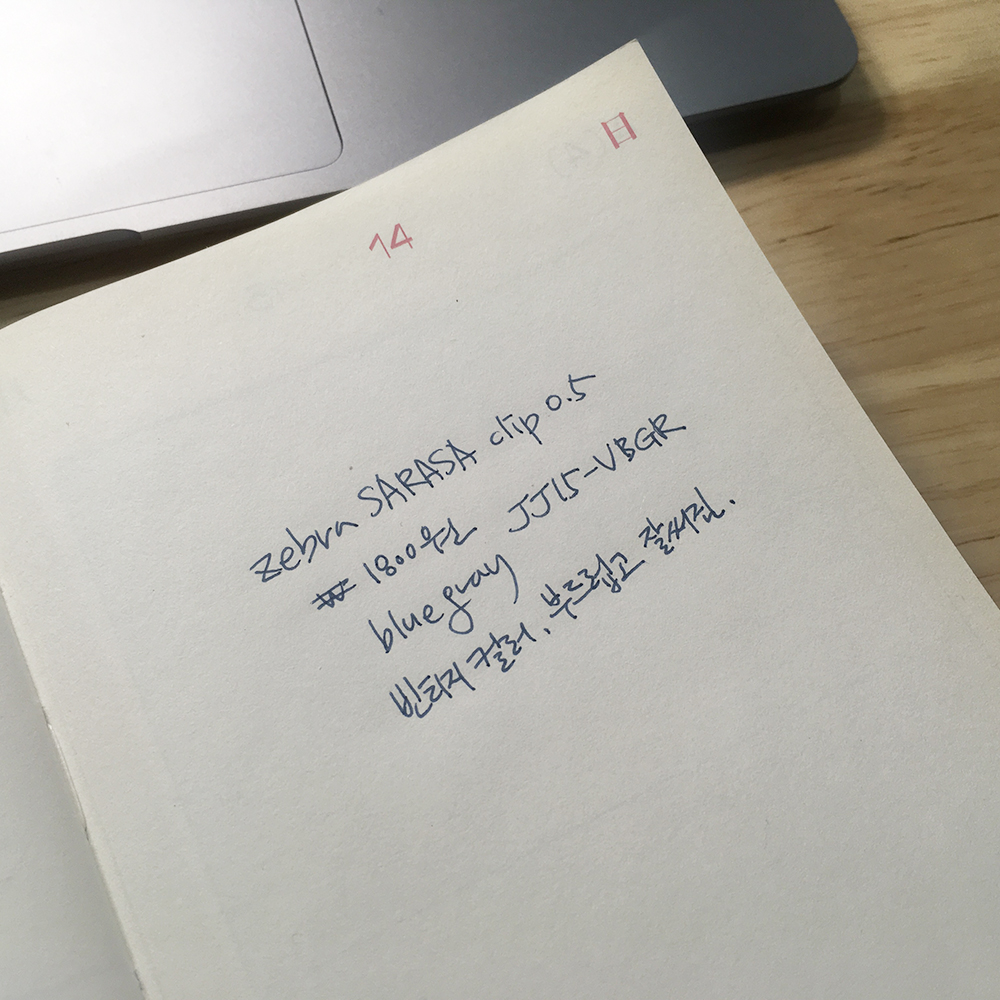 日
14
zebra SARASA clip 0.5
₩ 1800원 JJ15-VBGR
blue gray
빈티지 컬러. 부드럽고 잘써짐.